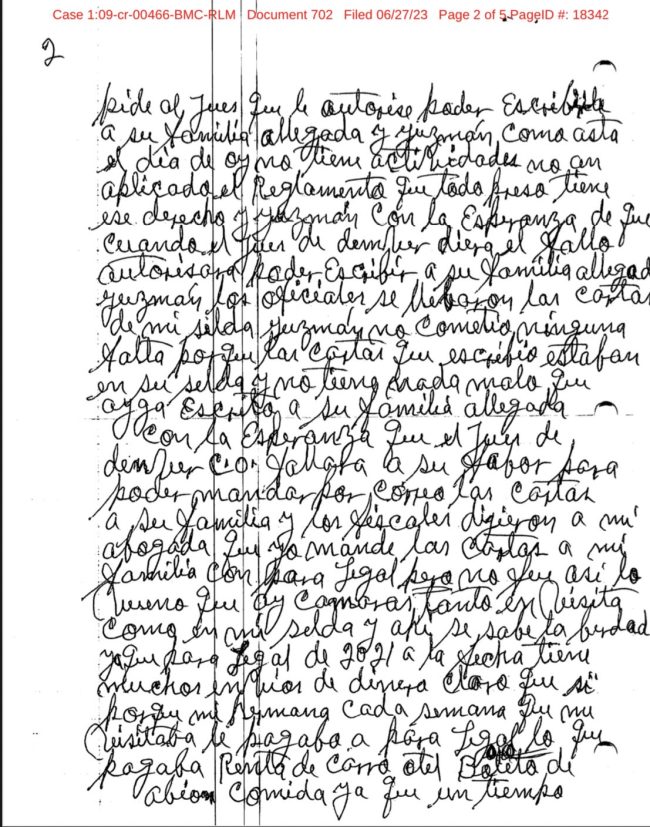 Case 1:09-cr-00466-BMC-RLM Document 702 Filed 06/27/23 Page 2 of 5 PageID #: 18342
2
pide al Jues que le autorise poder Escribirle
a su familia allegada y guzmán como asta
el dia de oy no tiene actibidades no an
aplicado el Reglamento que todo preso tiene
ese derecho y guzmán Con la Esperanza de que
cuando el Jues de dember diera el fallo
autorisara poder Escribir a su familia allegad
guzmán los oficiales se llebaron las cartas
de mi selda guzmán no cometio ninguna
falta porque las cartas que escribio estaban
en su selda y no tiene nada malo que
ayga Escrito a su familia allegada
Con la Esperanza que el Jues de
dember C.O. fallara a su fabor para
poder mandar por correo las cartas
a su familia y los fiscales digieron a mi
abogada que yo mande las cartas a mi
familia con para legal pero no fue asi lo
bueno que ay camaras tanto en Visita
como en mi selda y ahi se sabe la berdad
ya que para legal de 2021 a la fecha tiene
muchos enbios de dinero claro que si
porque mi hermana cada semana que me
Visitaba le pagaba a para legal lo que
pagaba Renta de carro otel Boleto de
abion comida ya que un tiempo